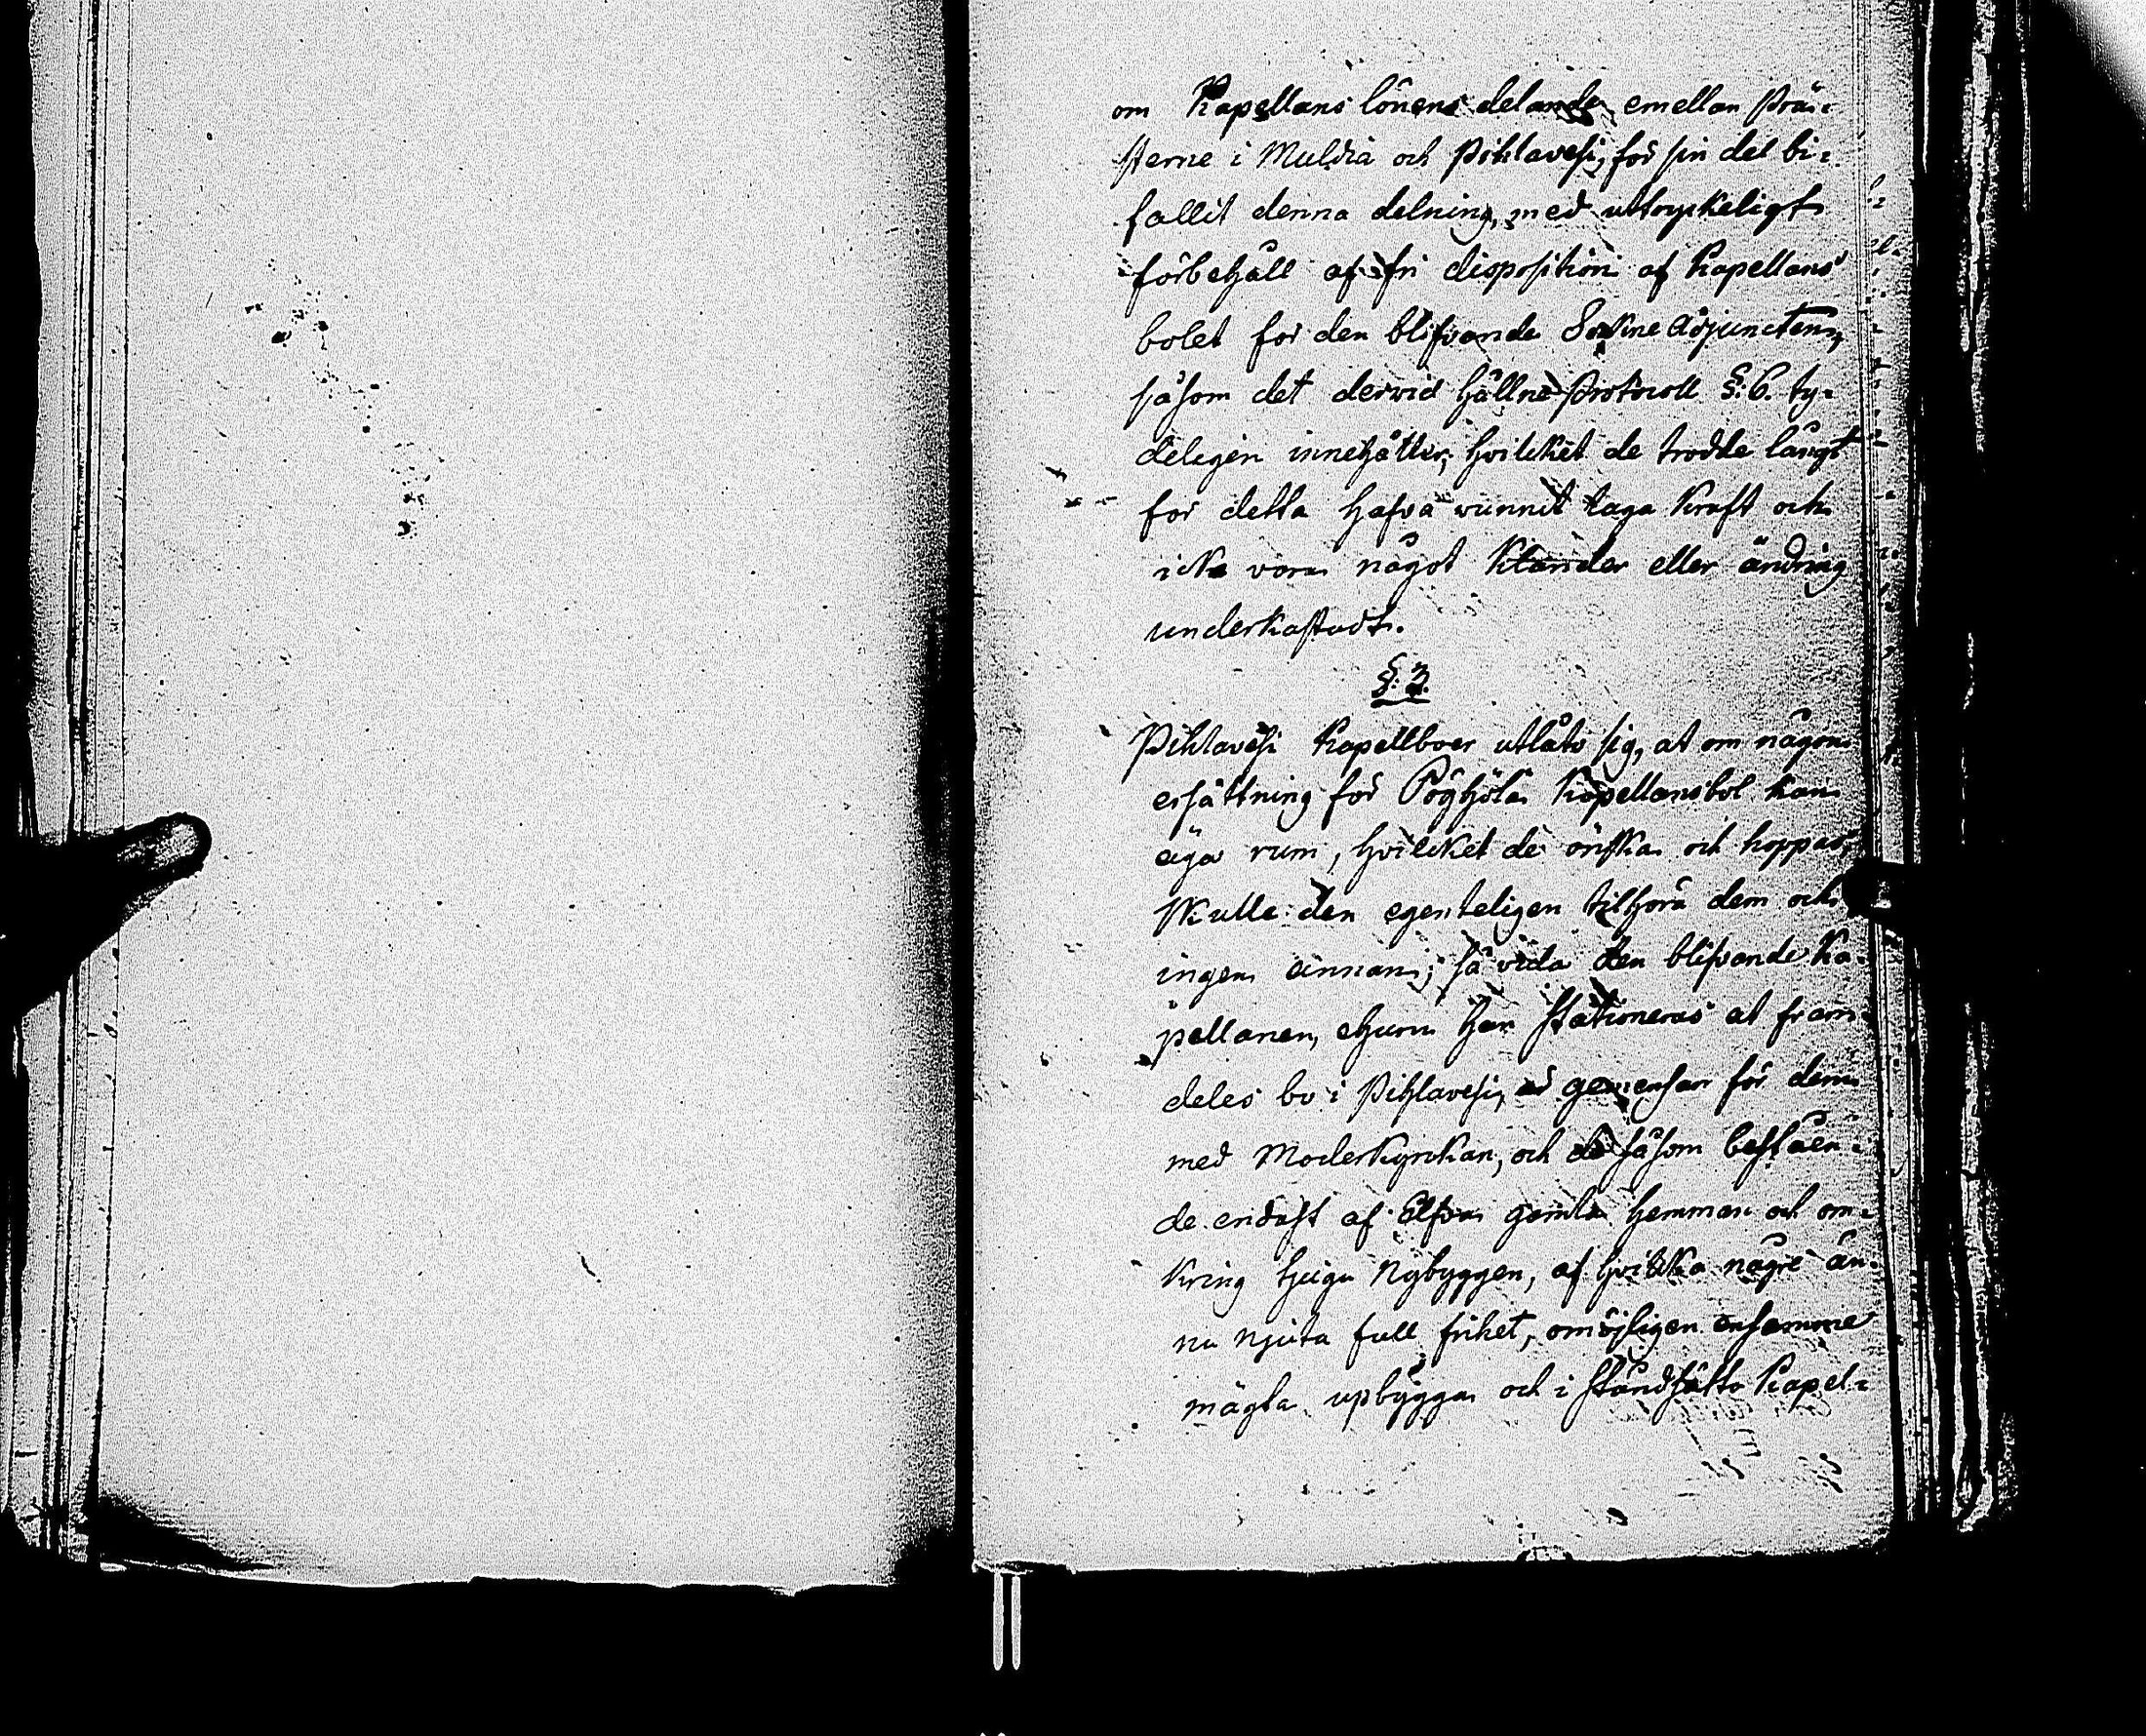 om Kapellans lönens delande emellan Prä-
sterne i Muldia och Pihlavesi, för sin del bi-
fallit denna delning, med uttryckeligt
förbehåll af fri disposition af Kapellans
bolet för den blifvande Sockne Adjuncten,
såsom det dervid hållne Protocoll §. 6. ty-
deligen innehåller, hvilcket de trodde långt
för detta hafva vunnit laga kraft och
icke vara något klander eller ändring
underkastadt.
§. 3.
Pihlavesi Kapellboer utlåto sig, at om någon
ersättning för Kapellansbol kan
äga rum, hvilcket de önska och hoppas,
skulle den egenteligen tilhöra dem och
ingen annan; så vida den blifvande Ka-
pellanen, ehuru han stationeras at fram-
deles bo i Pihlavesi, är gemensam för dem
med Moderkyrckan, och de såsom beståen-
de endast af Elfva gamla hemman och om-
kring tjugu Nybyggen, af hvilcka någre än-
nu njuta full frihet, omöjligen ensamme
mägta upbygga och i ståndsätta Kapel-